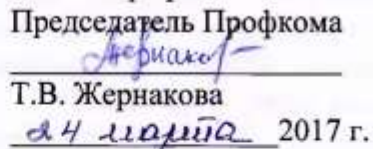 Председатель Профкома
Жернакова
Т.В. Жернакова
24 марта 2017 г.